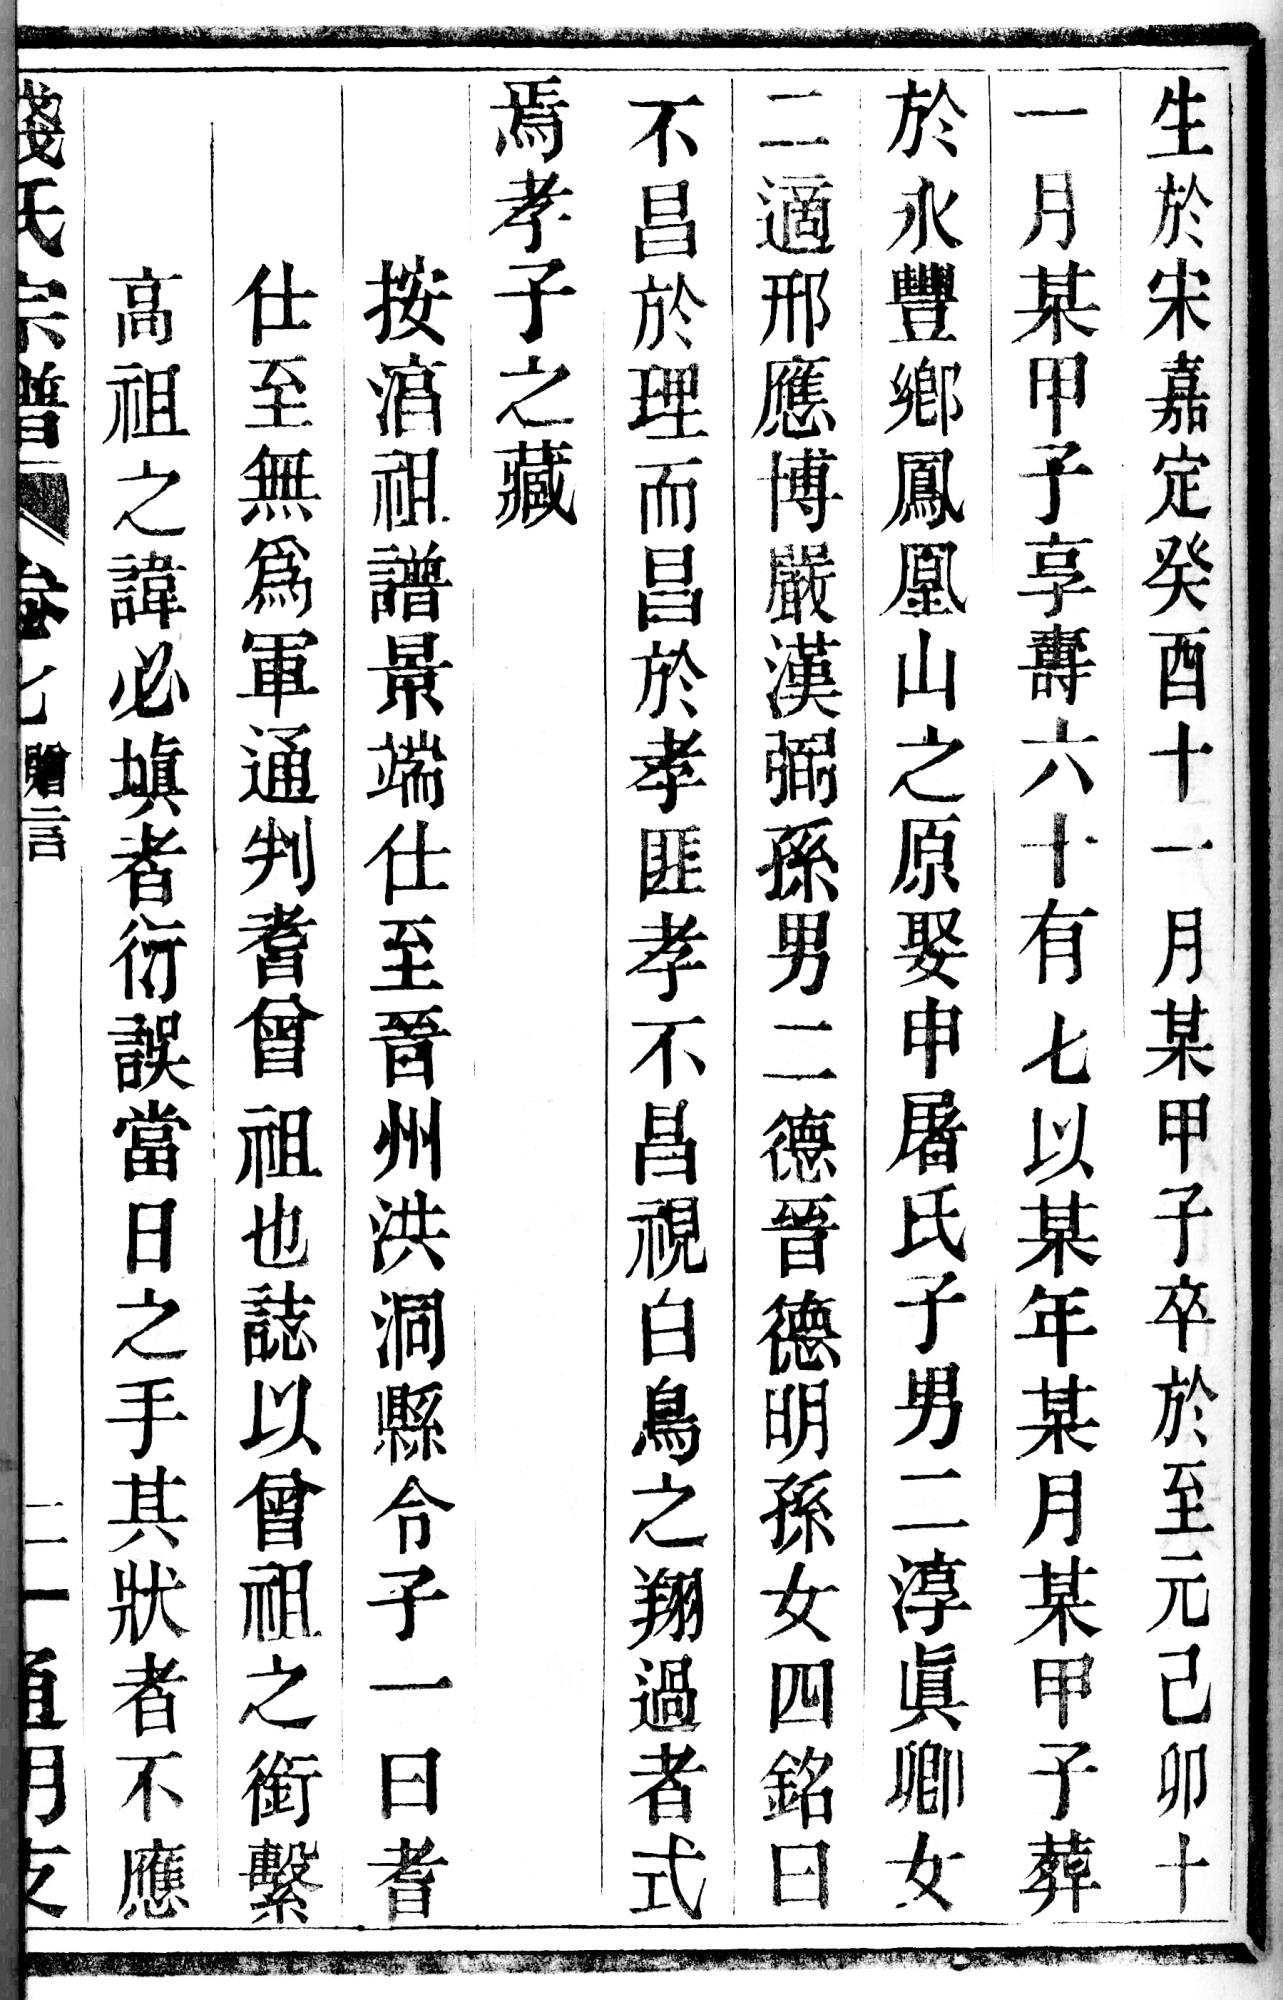 生於宋嘉定癸酉十一月某甲子卒於至元己卯十
一月某甲子享壽六十有七以某年某月某甲子葬
於永豐鄉鳳凰山之原娶申屠氏子男二淳眞卿女
二適邢應博嚴漢弼孫男二德晉德明孫女四銘曰
不昌於理而昌於孝匪孝不昌視白鳥之翔過者式
焉孝子之藏
按滈祖譜景端仕至晉州洪洞縣令子一曰耆
仕至無爲軍通判耆曾祖也誌以曾祖之銜繫
高祖之諱必塡者衍誤當日之手其狀者不應
錢氏宗譜卷七贈言二一通明支